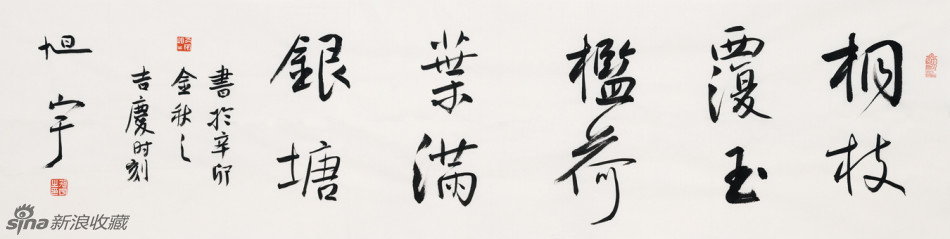 桐枝
覆玉
檻荷
葉滿
銀塘
書於辛卯
金秋之
吉慶时刻
恒宇
sina新浪收藏